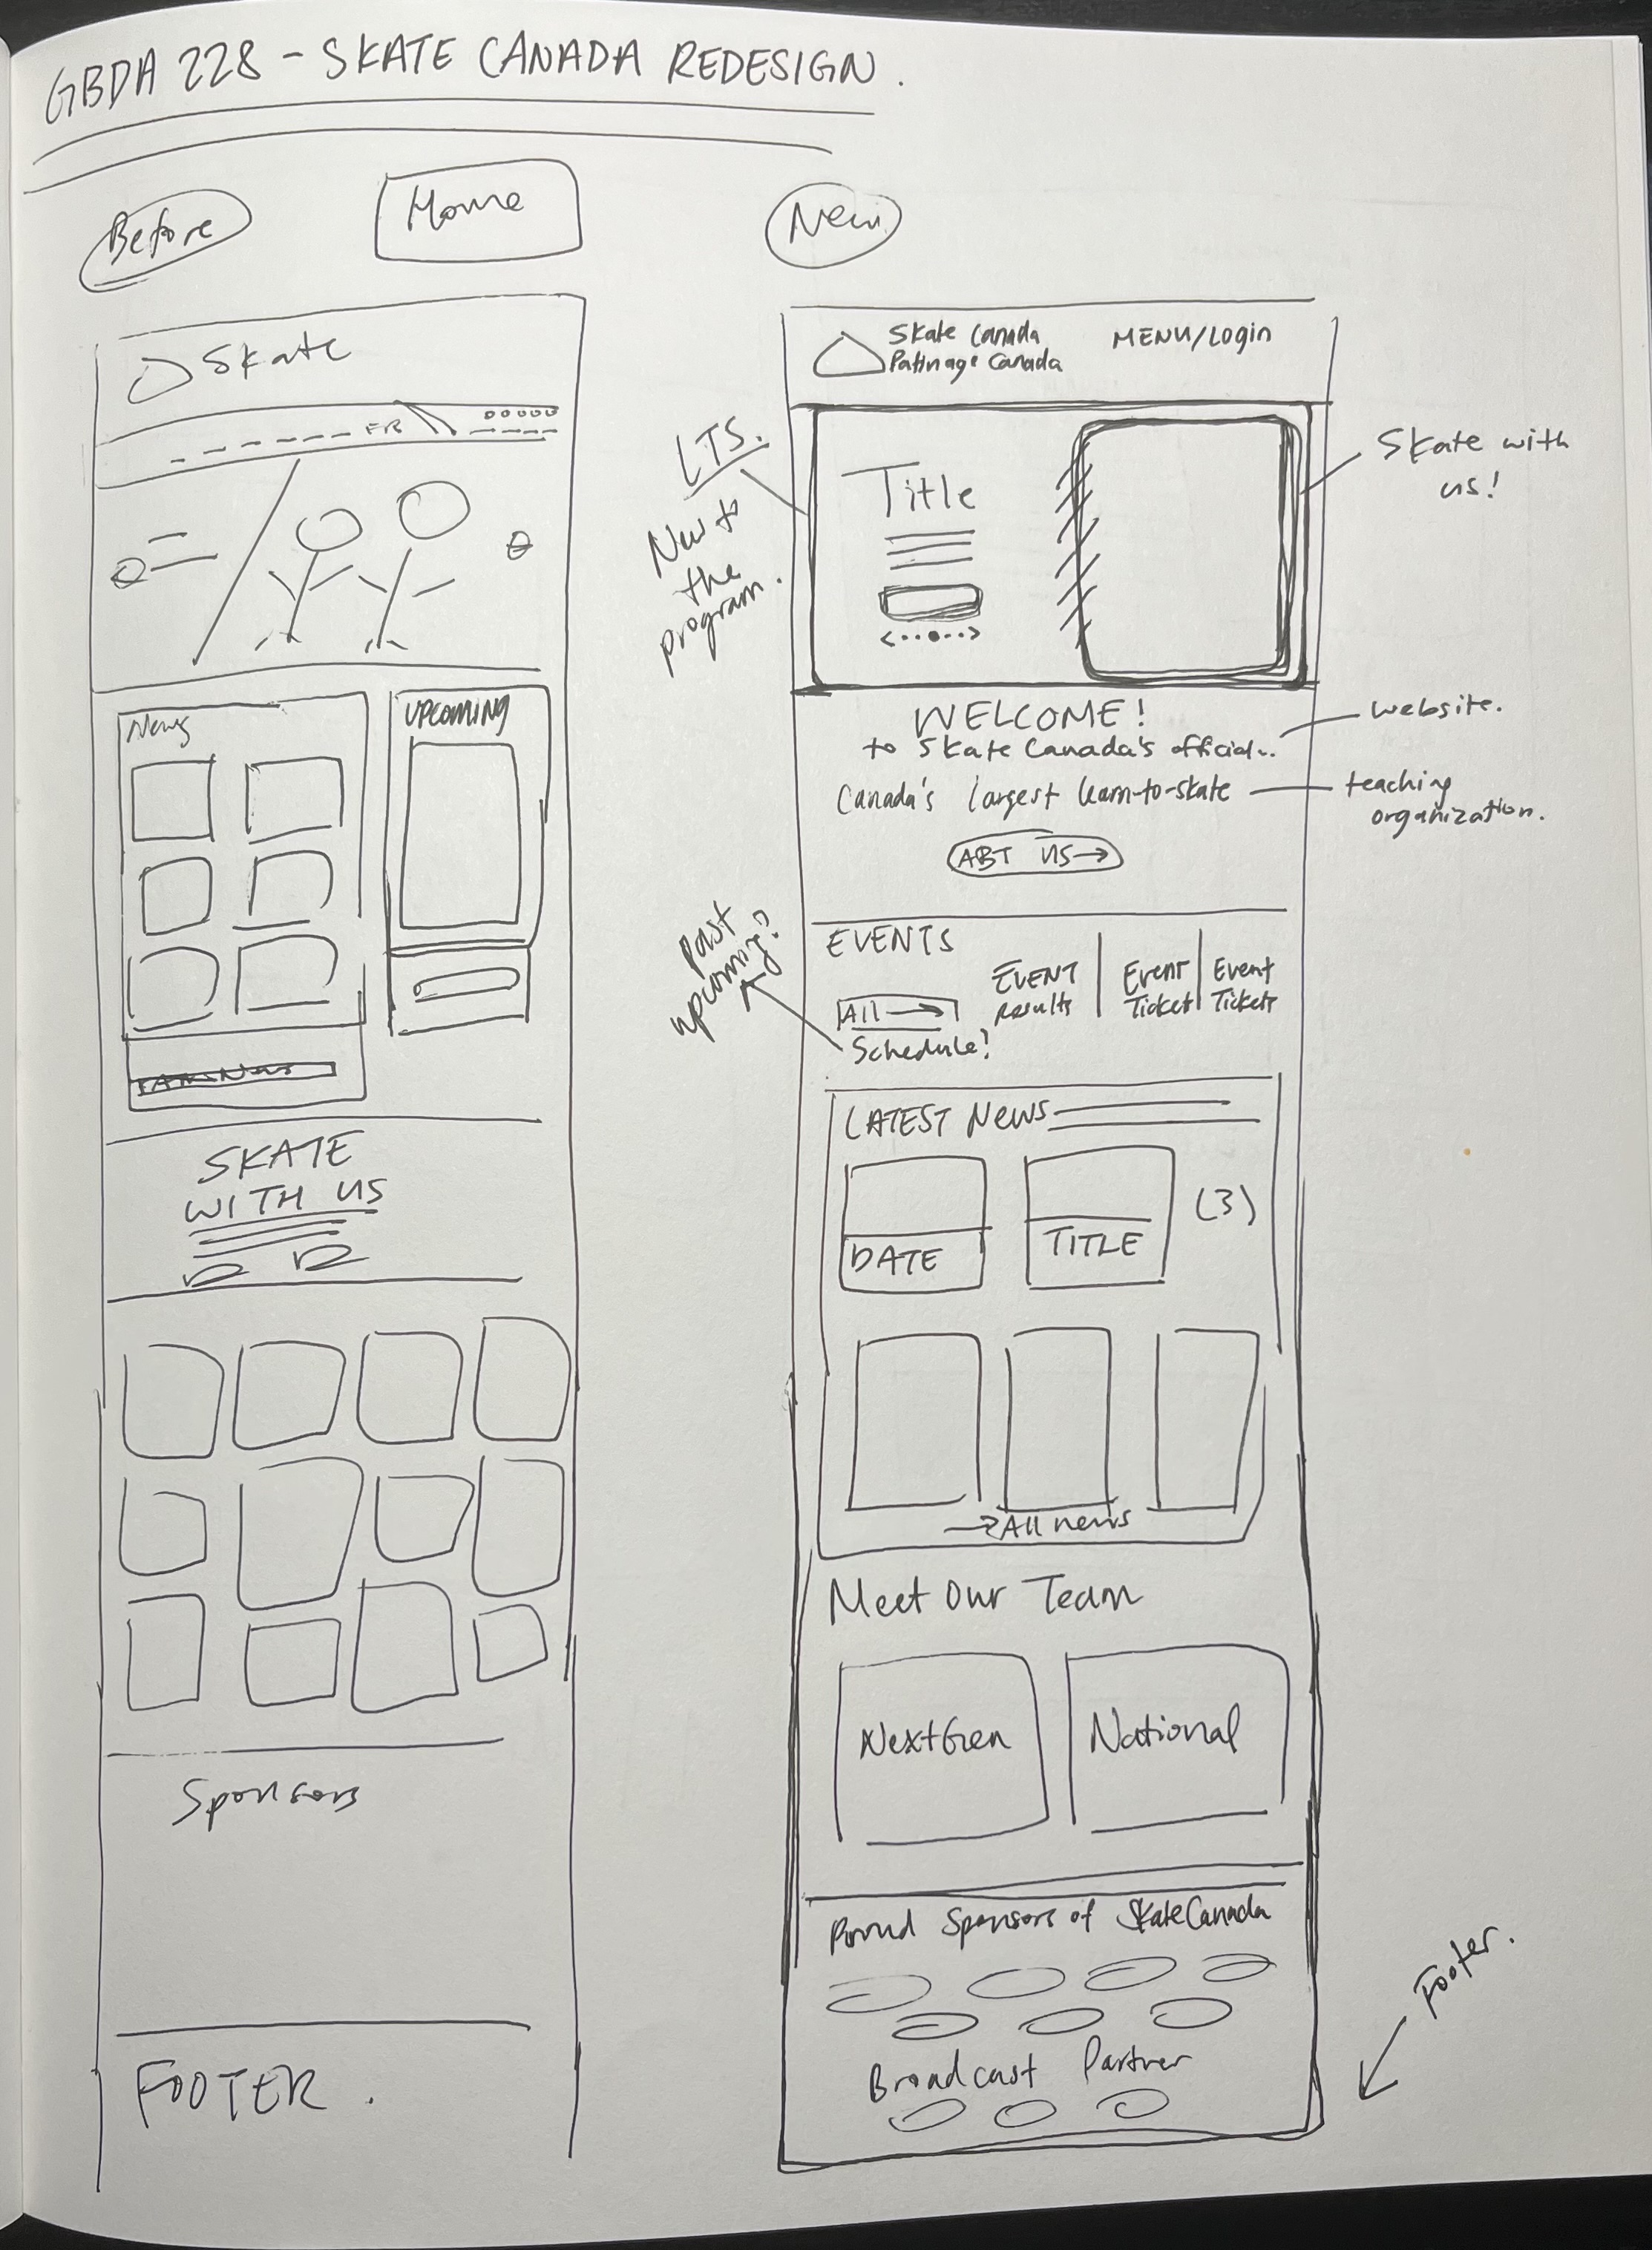 GBDA 228 - SKATE CANADA REDESIGN.
Before
Home
New
Skate
FR
News
UPCOMING
SKATE
WITH US
Sponsors
FOOTER.
Skate Canada
Patinage Canada
MENU/Login
LTS.
New to
the
program.
Title
Skate with
us!
WELCOME!
to Skate Canada's official...
website.
Canada's largest learn-to-skate
teaching
organization.
ABT US→
EVENTS
Past
upcoming?
All →
Schedule?
EVENT
results
Event
Ticket
Event
Tickets
LATEST News
DATE
TITLE
(3)
→ All news
Meet Our Team
NextGen
National
Proud Sponsors of SkateCanada
Broadcast Partner
Footer.